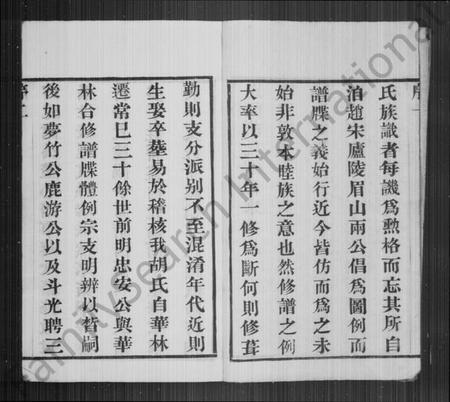 序
氏族識者每譏爲勲格而忘其所自
洎趙宋廬陵眉山兩公倡爲圖例而
譜牒之義始行近今皆仿而爲之未
始非敦本睦族之意也然修譜之例
大率以三十年一修爲斷何則修葺
勤則支分派别不至混淆年代近則
生娶卒塟易於稽核我胡氏自華林
遷常巳三十餘世前明忠安公與華
林合修譜牒體例宗支明辨以晳嗣
後如夢竹公鹿游公以及斗光聘三
序二
FamilySearch International